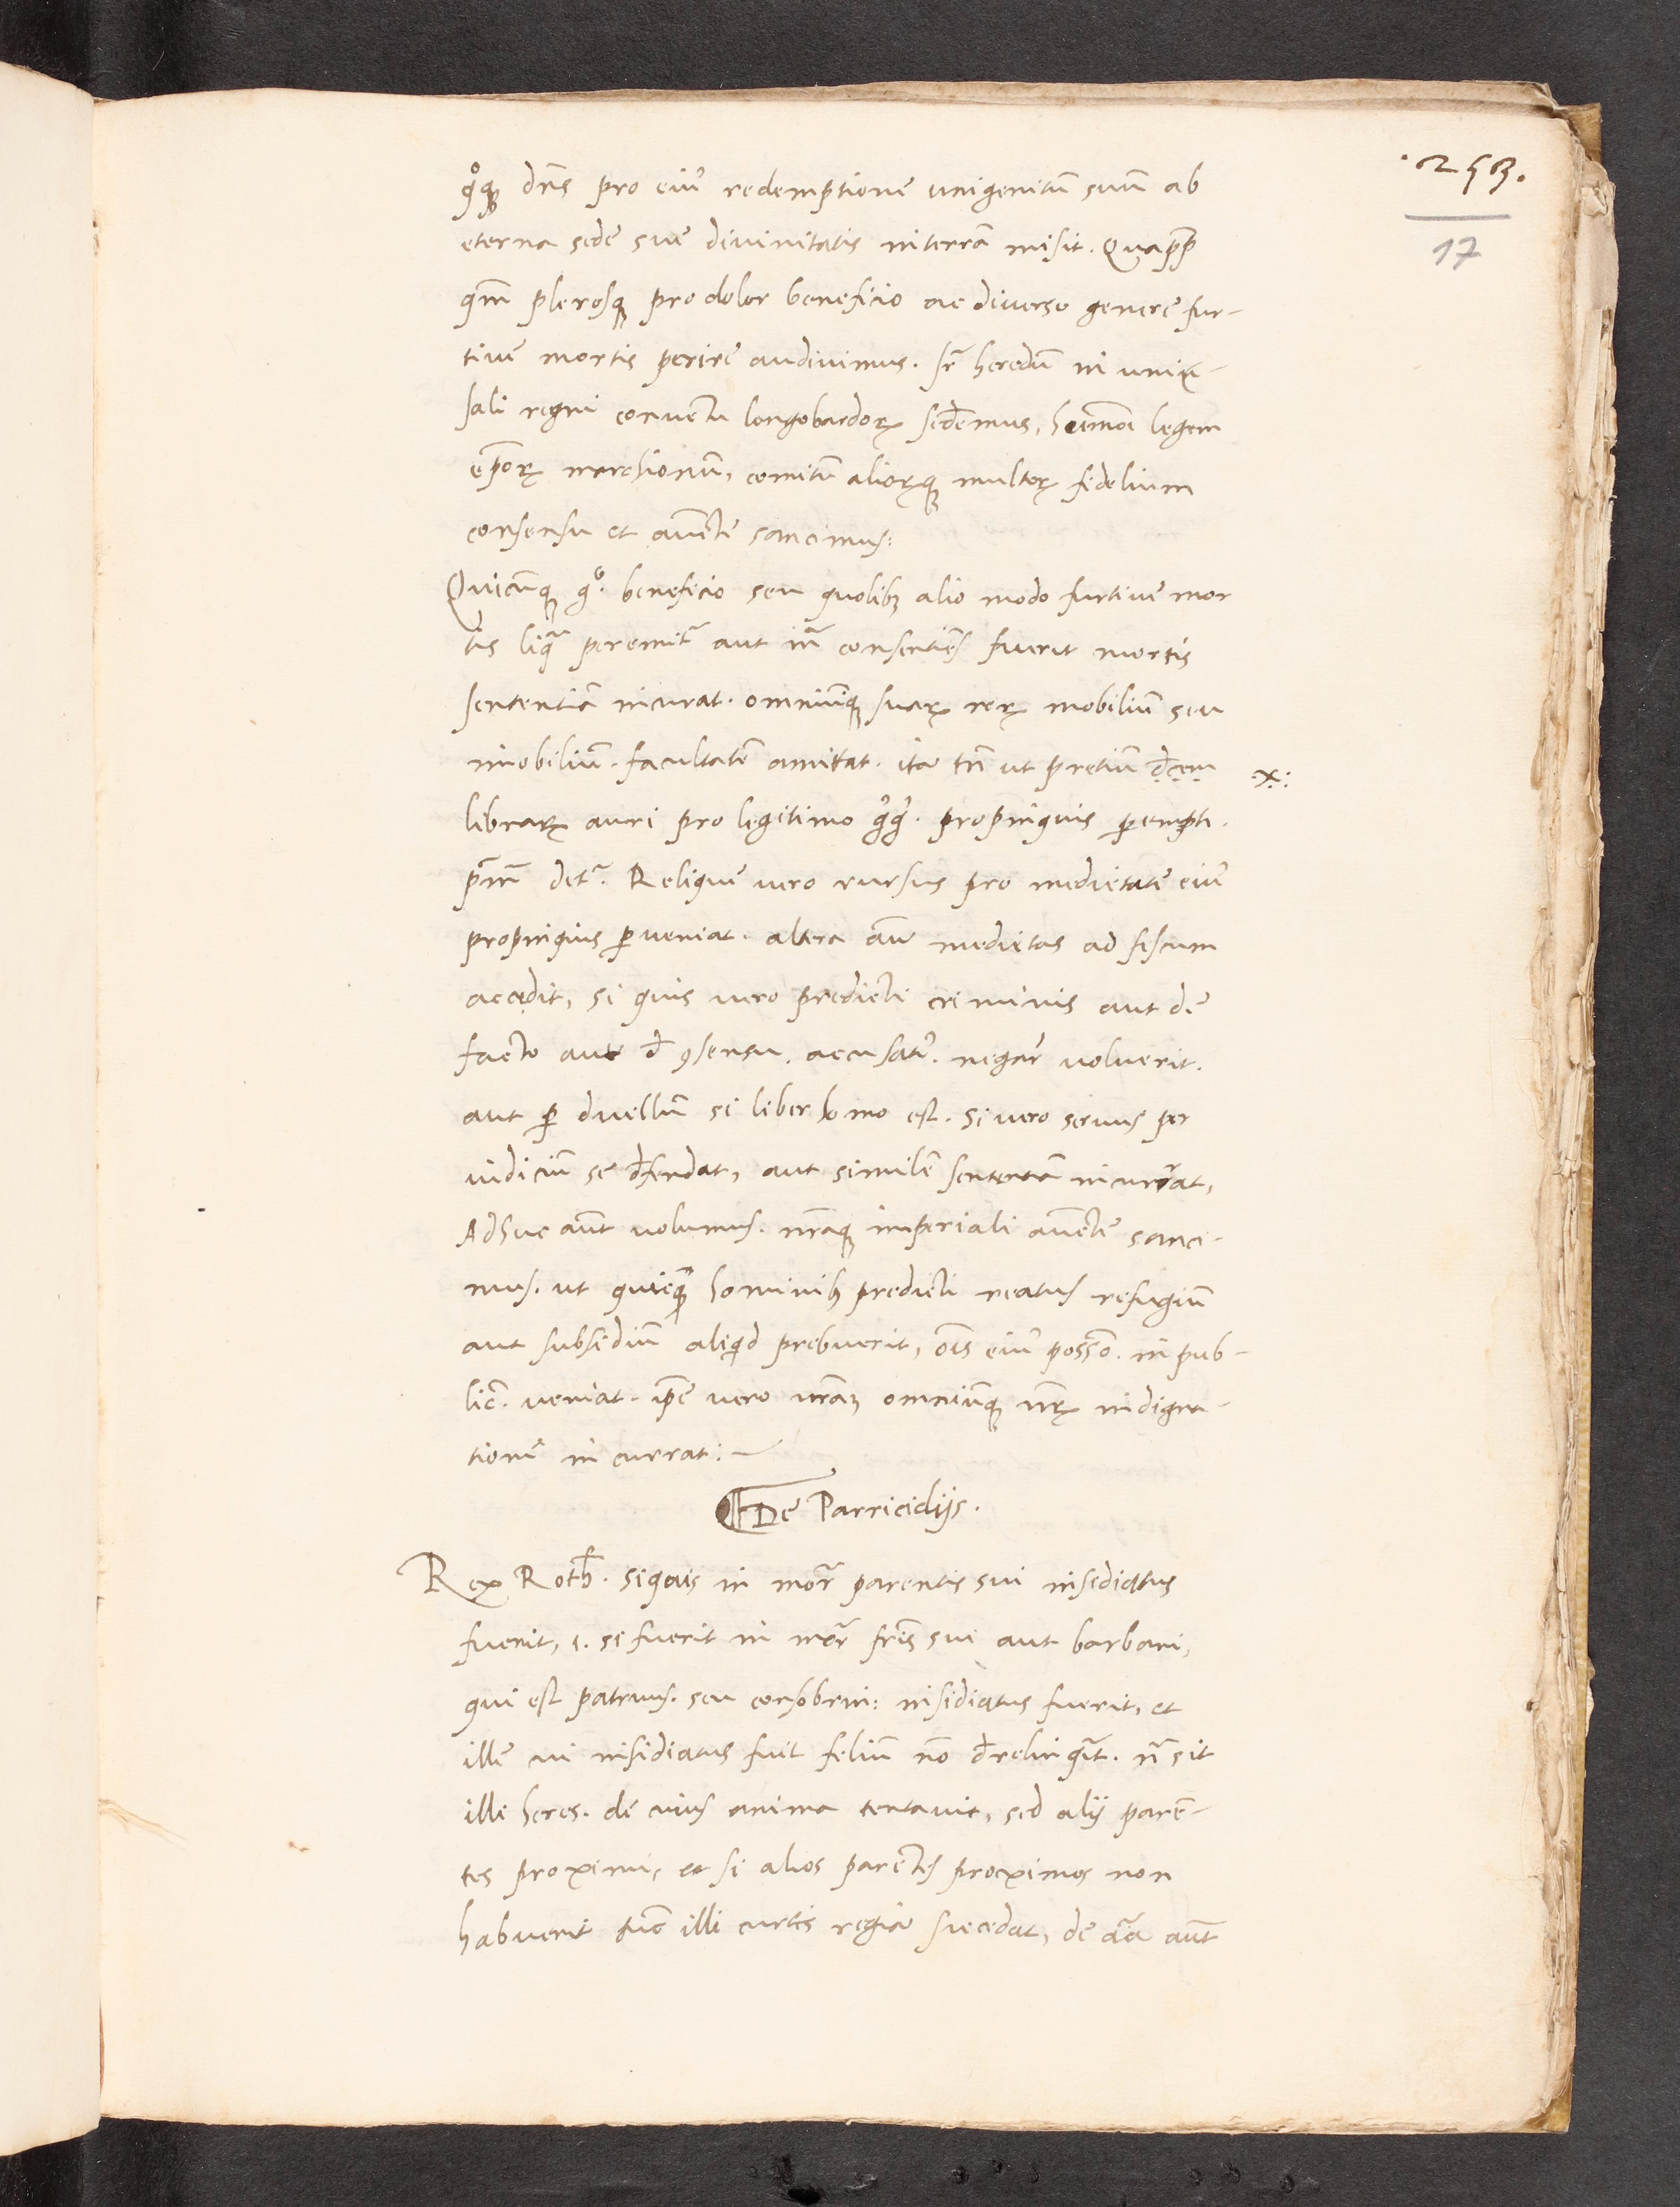 .253.
17
qͦq dn̄s pro eiu᷒ redemptione unigenitū suū ab
eterna sede sue divinitatis in terrā misit. Quaꝓp
qm̄ plerosq pro dolor beneficio ac diverso genere fur-
tive mortis perire audivimus. sr̄ heredū in univ̄-
sali regni conventu longobardoꝝ sed̄emus, huim̄oi legem
ep̄orꝝ marchionū, comitū alioꝝq multoꝝ fidelium
consensu et auc̄te sancimus:
Quicūq gͦ. beneficio seu quolibꝫ alio modo furtive mor
tis liq̄ peremit᷑ aut in̄ consentiēs fuerit mortis
sententiā incurat. omniūq suaꝝ reꝝ mobiliū seu
inobiliū. facultatē amittat. ita tn̄ ut pretiū d̄cem .x.
libraꝝ auri pro legitimo g̃g̃. propinquis ꝑempti.
p̄m̄ det᷑. Reliquē vero rursus pro medietate eiu᷒
propinquis ꝑveniat. altera aū medietas ad fiscum
accedit, si quis vero predicti criminis aut de
facto aut d̄ ꝯsensu. accusat᷒. negar̄ voluerit.
aut ꝑ duellū si liber homo est. si vero servus per
iudiciū se d̄fendat, aut similē sententiā incurrat,
Adhuc aūt volumus. nr̄aq imperiali auc̄te sanci-
mus. ut quicq̄ hominibꝫ predicti reatus refugiū
aut subsidiū aliq̄d prebuerit, oīs eiu᷒ possō. in pub-
lic̄. veniat. ip̄e vero nr̄aꝫ omniūq nr̄ꝝ indigna-
tionē incurrat:
De Parricidijs.
Rex Roth̄. Siquis in mor̄ parentis sui insidiatus
fuerit, .i. si fuerit in mor̄ fr̄is sui aut barbani,
qui est patruus. seu consobrini: insidiatus fuerit, et
ille cui insidiatus fuit filiū nō d̄relinq̄t. nō sit
illi heres. de cuius anima tentavit, sed alij parē-
tes proximi, et si alios parētes proximos non
habuerit tūc illi curtis regia succedat, de aīa aūt